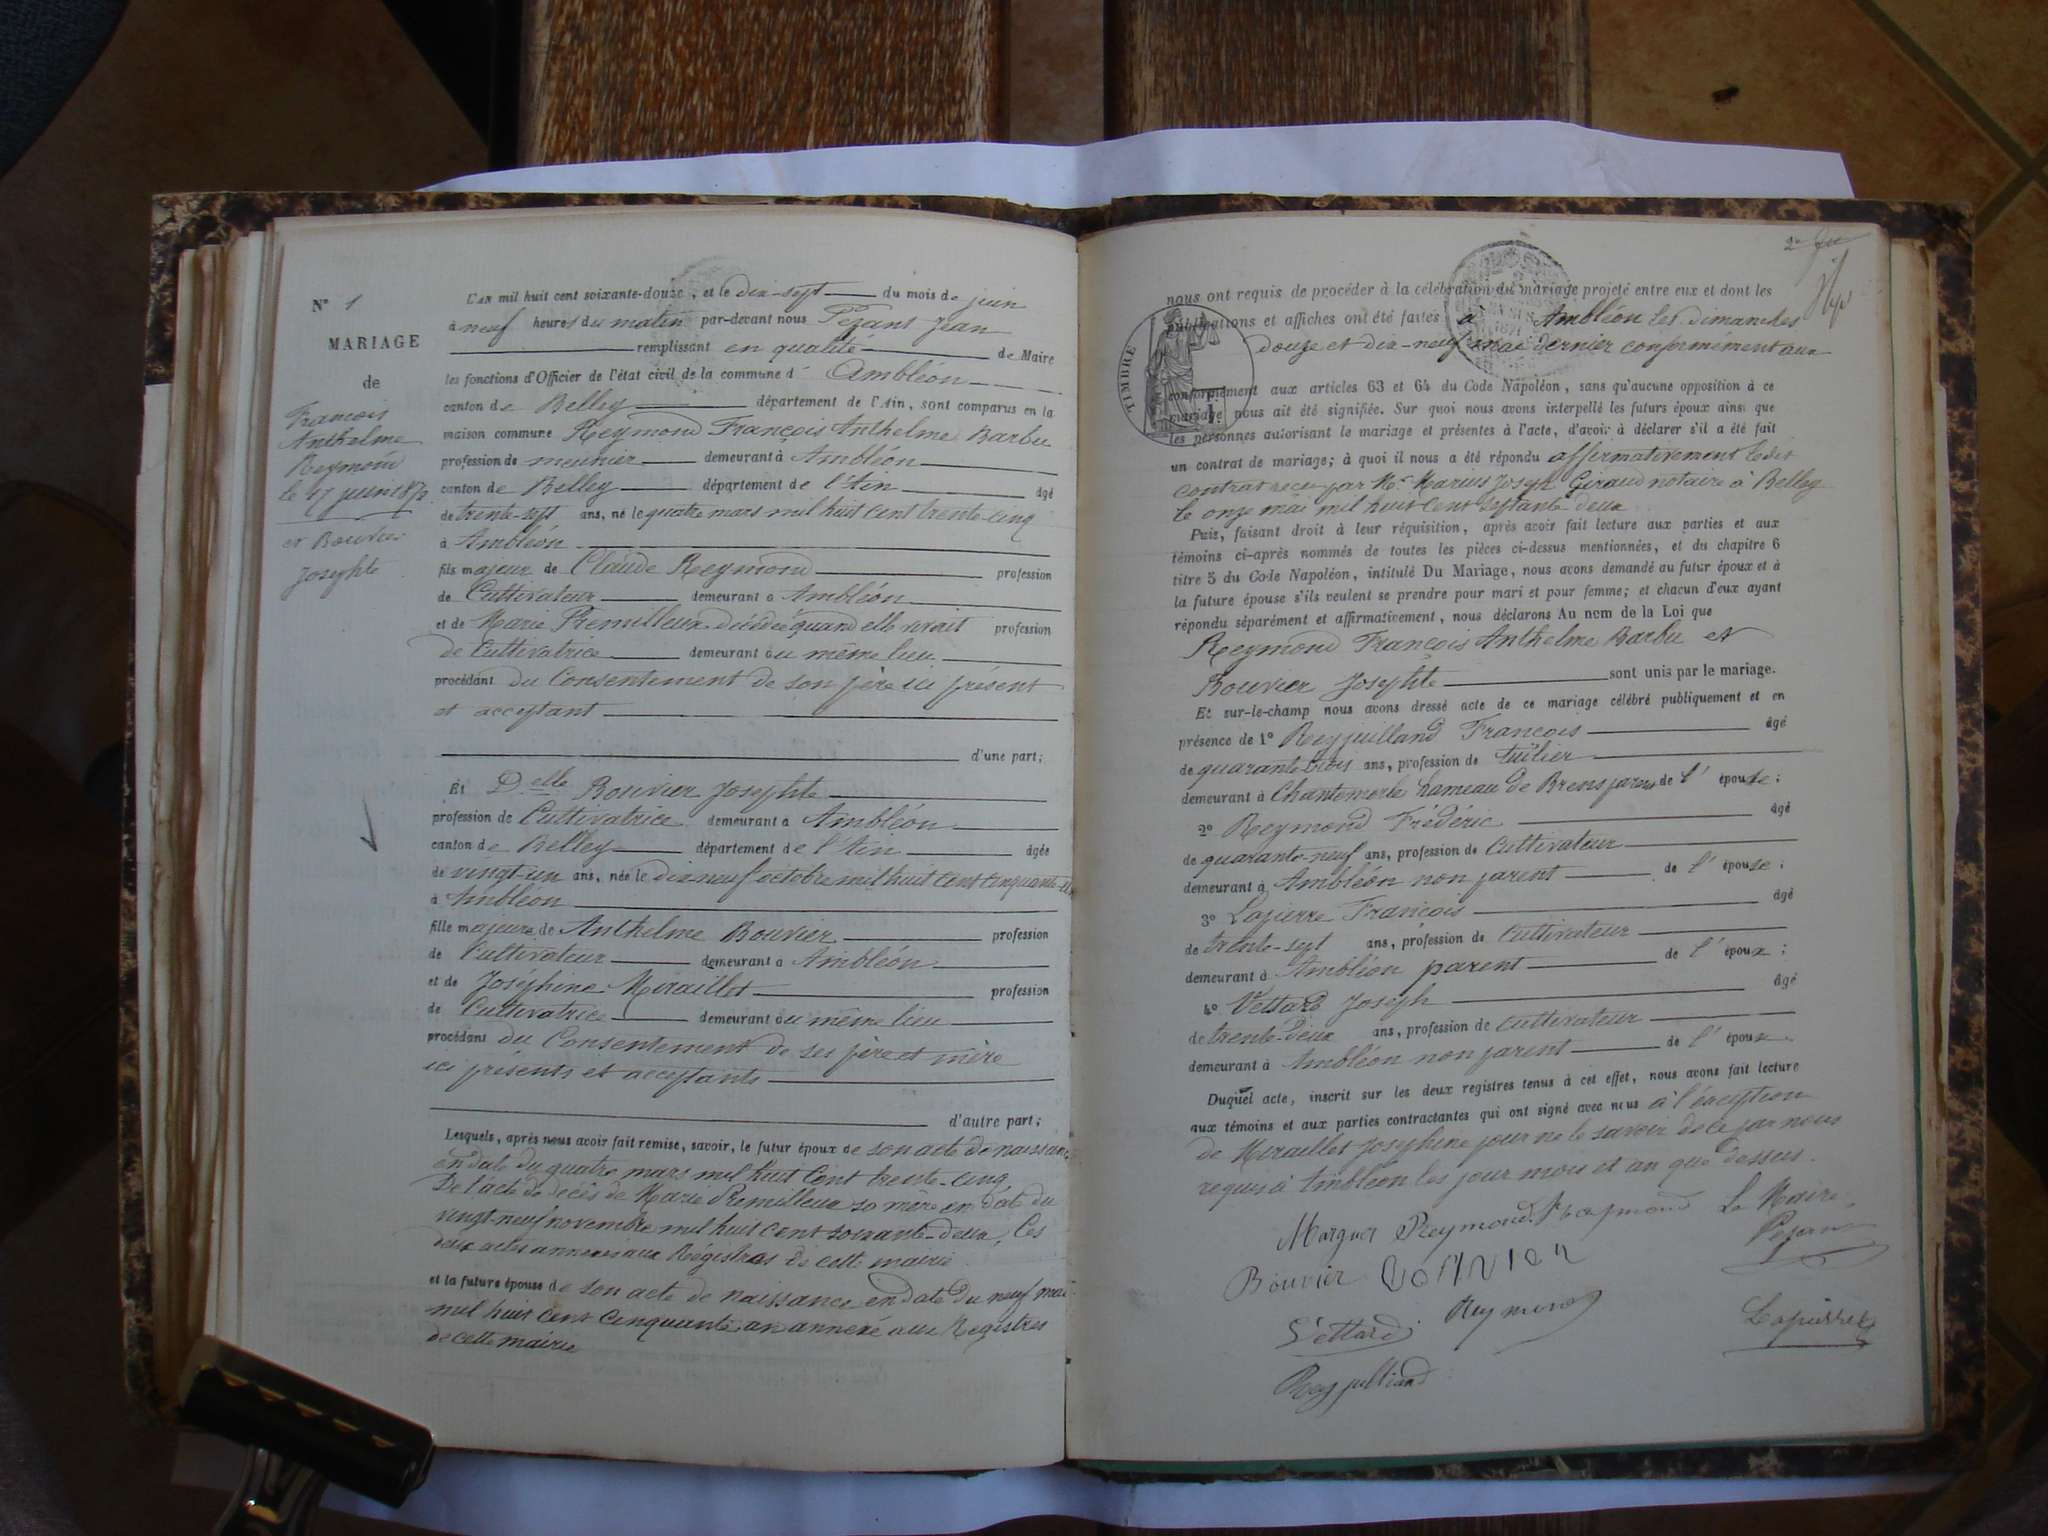 N° 1
MARIAGE
de
François
Anthelme
Reymond
le 17 juin 1872
et Bouvier
Josephte
L'AN mil huit cent soixante-douze, et le dix-sept du mois de juin
à neuf heures du matin par-devant nous Pezant Jean
remplissant en qualité de Maire
les fonctions d'Officier de l'état civil de la commune d' Ambléon
canton de Belley département de l'Ain, sont comparus en la
maison commune Reymond François Anthelme Barbu
profession de meunier demeurant à Ambléon
canton de Belley département de l'Ain âgé
de trente-sept ans, né le quatre mars mil huit cent trente-cinq
à Ambléon
fils majeur de Claude Reymond profession
de Cultivateur demeurant à Ambléon
et de Marie Premilleux décédée quand elle vivait profession
de Cultivatrice demeurant au même lieu
procédant du Consentement de son père ici présent
et acceptant
d'une part;
Et Delle Bouvier Josephte
profession de Cultivatrice demeurant à Ambléon
canton de Belley département de l'Ain âgée
de vingt-un ans, née le dix neuf octobre mil huit cent cinquante
à Ambléon
fille majeure de Anthelme Bouvier profession
de Cultivateur demeurant à Ambléon
et de Joséphine Miraillet profession
de Cultivatrice demeurant au même lieu
procédant du Consentement de ses père et mère
ici présents et acceptants
d'autre part;
Lesquels, après nous avoir fait remise, savoir, le futur époux de son acte de naissance
en date du quatre mars mil huit cent trente-cinq
De l'acte de décès de Marie Premilleux sa mère en date du
vingt-neuf novembre mil huit cent soixante-deux, Ces
deux actes annexés aux Registres de cette mairie
et la future épouse de son acte de naissance en date du neuf mai
mil huit cent cinquante un annexé aux Registres
de cette mairie
2e
nous ont requis de procéder à la célébration du mariage projeté entre eux et dont les
publications et affiches ont été faites à Ambléon les dimanches
douze et dix-neuf mai dernier conformement aux
TIMBRE
conformément aux articles 63 et 64 du Code Napoléon, sans qu'aucune opposition à ce
mariage nous ait été signifiée. Sur quoi nous avons interpellé les futurs époux ainsi que
les personnes autorisant le mariage et présentes à l'acte, d'avoir à déclarer s'il a été fait
un contrat de mariage; à quoi il nous a été répondu affirmativement ledit
contrat reçu par Me Marius Joseph Giraud notaire à Belley
le onze mai mil huit cent septante-deux
Puis, faisant droit à leur réquisition, après avoir fait lecture aux parties et aux
témoins ci-après nommés de toutes les pièces ci-dessus mentionnées, et du chapitre 6
titre 5 du Code Napoléon, intitulé Du Mariage, nous avons demandé au futur époux et à
la future épouse s'ils veulent se prendre pour mari et pour femme; et chacun d'eux ayant
répondu séparément et affirmativement, nous déclarons Au nom de la Loi que
Reymond François Anthelme Barbu et
Bouvier Josephte sont unis par le mariage.
Et sur-le-champ nous avons dressé acte de ce mariage célébré publiquement et en
présence de 1° Reyjuilland François âgé
de quarante trois ans, profession de tuilier
demeurant à Chantemerle hameau de Brens parent de l' épouse;
2° Reymond Frédéric âgé
de quarante-neuf ans, profession de Cultivateur
demeurant à Ambléon non parent de l' épouse;
3° Lapierre François âgé
de trente-sept ans, profession de Cultivateur
demeurant à Ambléon parent de l' époux;
4° Vettard Joseph âgé
de trente-deux ans, profession de Cultivateur
demeurant à Ambléon non parent de l' époux
Duquel acte, inscrit sur les deux registres tenus à cet effet, nous avons fait lecture
aux témoins et aux parties contractantes qui ont signé avec nous à l'exception
de Miraillet Josephine pour ne le savoir de ce par nous
requis à Ambléon les jour mois et an que dessus.
Reymond Raymond Le Maire
Pezant
Bouvier
Vettard Reymond Lapierre
Reyjulliand